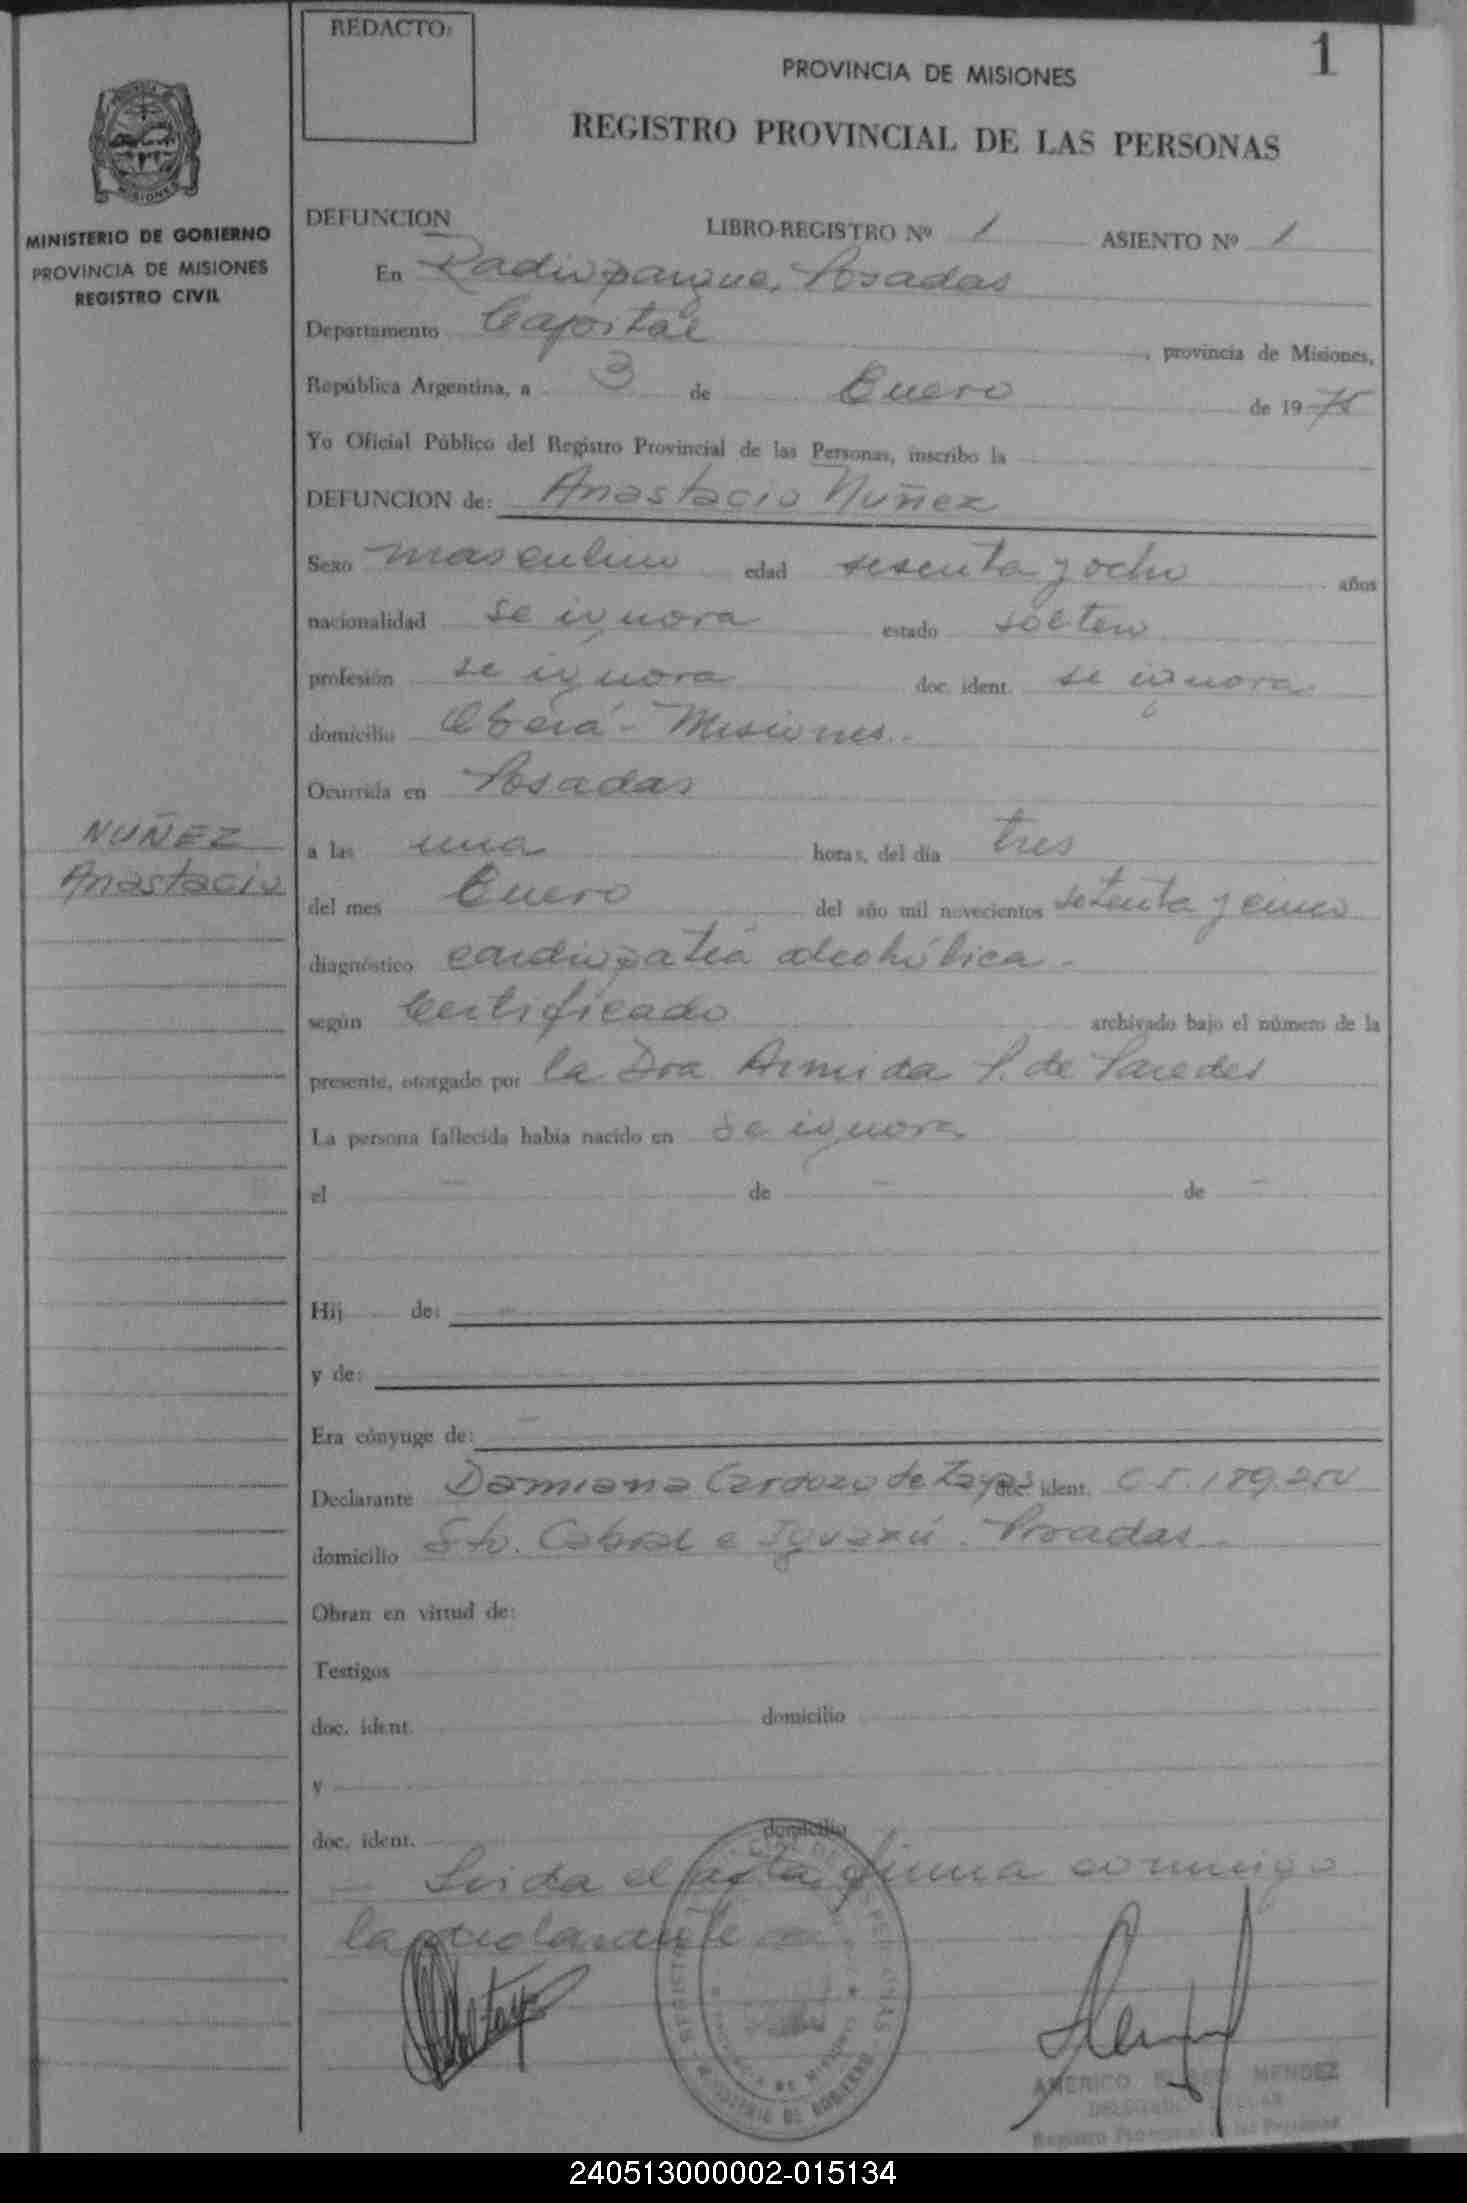 REDACTO:
1
PROVINCIA DE MISIONES
REGISTRO PROVINCIAL DE LAS PERSONAS
MISIONES
MINISTERIO DE GOBIERNO
PROVINCIA DE MISIONES
REGISTRO CIVIL
DEFUNCION LIBRO-REGISTRO Nº 1 ASIENTO Nº 1
En Radioparque, Posadas
Departamento Capital, provincia de Misiones,
República Argentina, a 3 de Enero de 1975
Yo Oficial Público del Registro Provincial de las Personas, inscribo la
DEFUNCION de: Anastacio Nuñez
Sexo masculino edad sesenta y ocho años
nacionalidad se ignora estado soltero
profesión se ignora doc. ident. se ignora
domicilio Oberá - Misiones.
Ocurrida en Posadas
NUÑEZ
Anastacio
a las una horas, del día tres
del mes Enero del año mil novecientos setenta y cinco
diagnóstico cardiopatía alcohólica -
según Certificado archivado bajo el número de la
presente, otorgado por la Dra Armida P. de Paredes
La persona fallecida había nacido en se ignora
el - de - de -
Hij de:
y de:
Era cónyuge de: -
Declarante Damiana Cardozo de Zayas doc. ident. C.I. 189.250
domicilio Sto. Cabral e Iguazú. Posadas -
Obran en virtud de:
Testigos
doc. ident. domicilio
y
doc. ident. domicilio
- Leída el acta, firma conmigo
la declarante
AMERICO MENDEZ
Registro Provincial de las Personas
MINISTERIO DE GOBIERNO
240513000002-015134